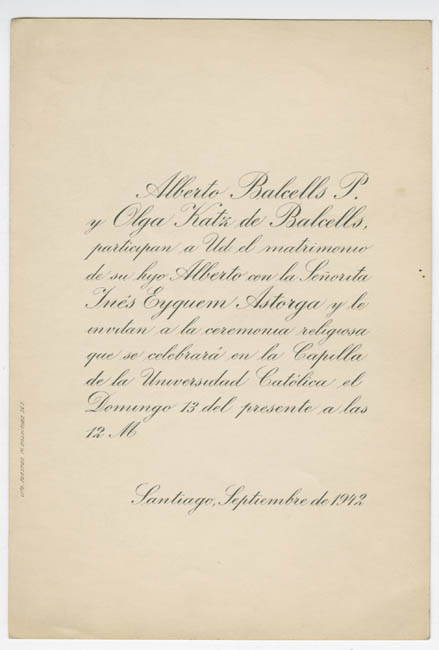 Alberto Balcells P.
y Olga Katz de Balcells,
participan a Ud el matrimonio
de su hijo Alberto con la Señorita
Inés Eyquem Astorga y le
invitan a la ceremonia religiosa
que se celebrará en la Capilla
de la Universidad Católica el
Domingo 13 del presente a las
12 M
Santiago, Septiembre de 1942